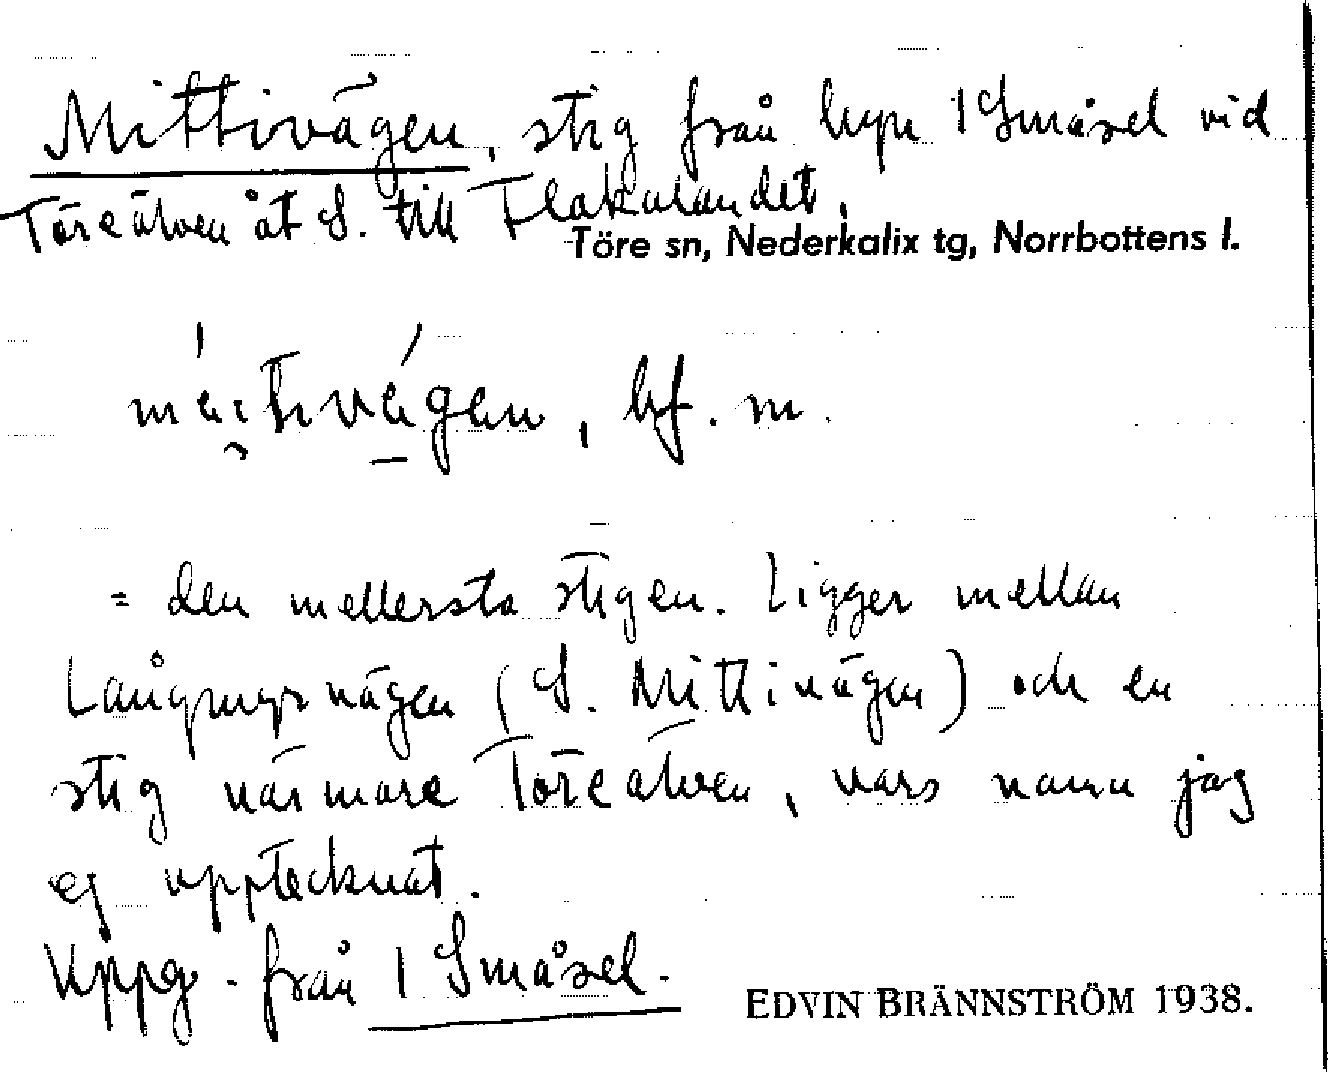 Mittivägen, stig från hpn 1 Småsel vid
Töreälven åt S. till Flakalandet,
Töre sn, Nederkalix tg, Norrbottens l.
bf. m.
= den mellersta stigen. Ligger mellan
Långmyrvägen (S. Mittivägen) och en
stig närmare Töreälven, vars namn jag
ej upptecknat.
Uppg. från 1 Småsel.
EDVIN BRÄNNSTRÖM 1938.